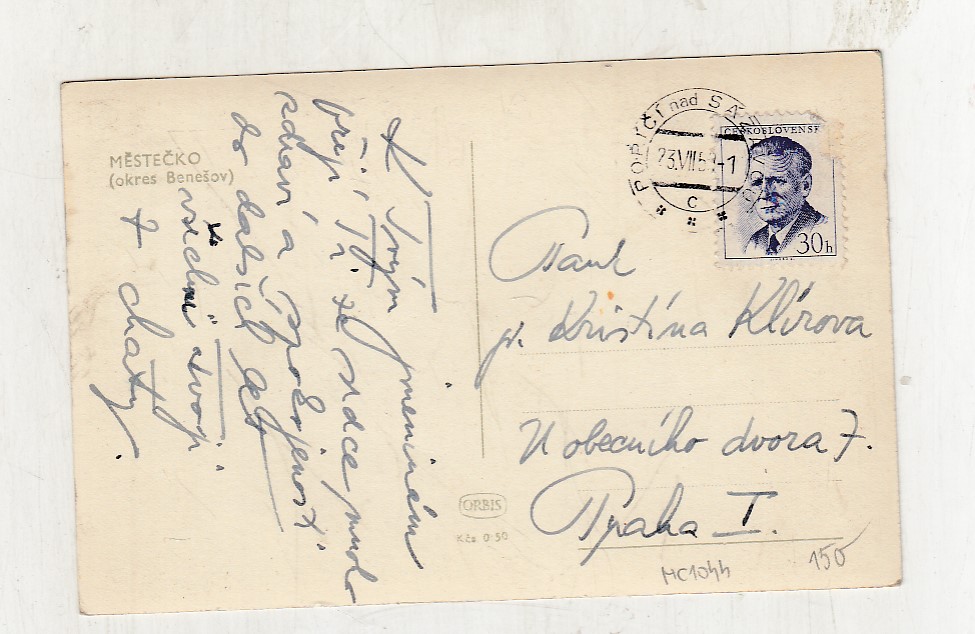 MĚSTEČKO
(okres Benešov)
K Tvým jmeninám
přeji Ti ze srdce mnoho
zdraví a spokojenosti
do dalších let
všichni Tvoji
z chaty.
POŘÍČÍ nad SÁZAVOU
23.VII.5 -1
c
ČESKOSLOVENSKO
30h
Paní
pí. Kristina Klírova
U obecního dvora 7.
Praha I.
ORBIS
Kčs 0·50
MC1044
150